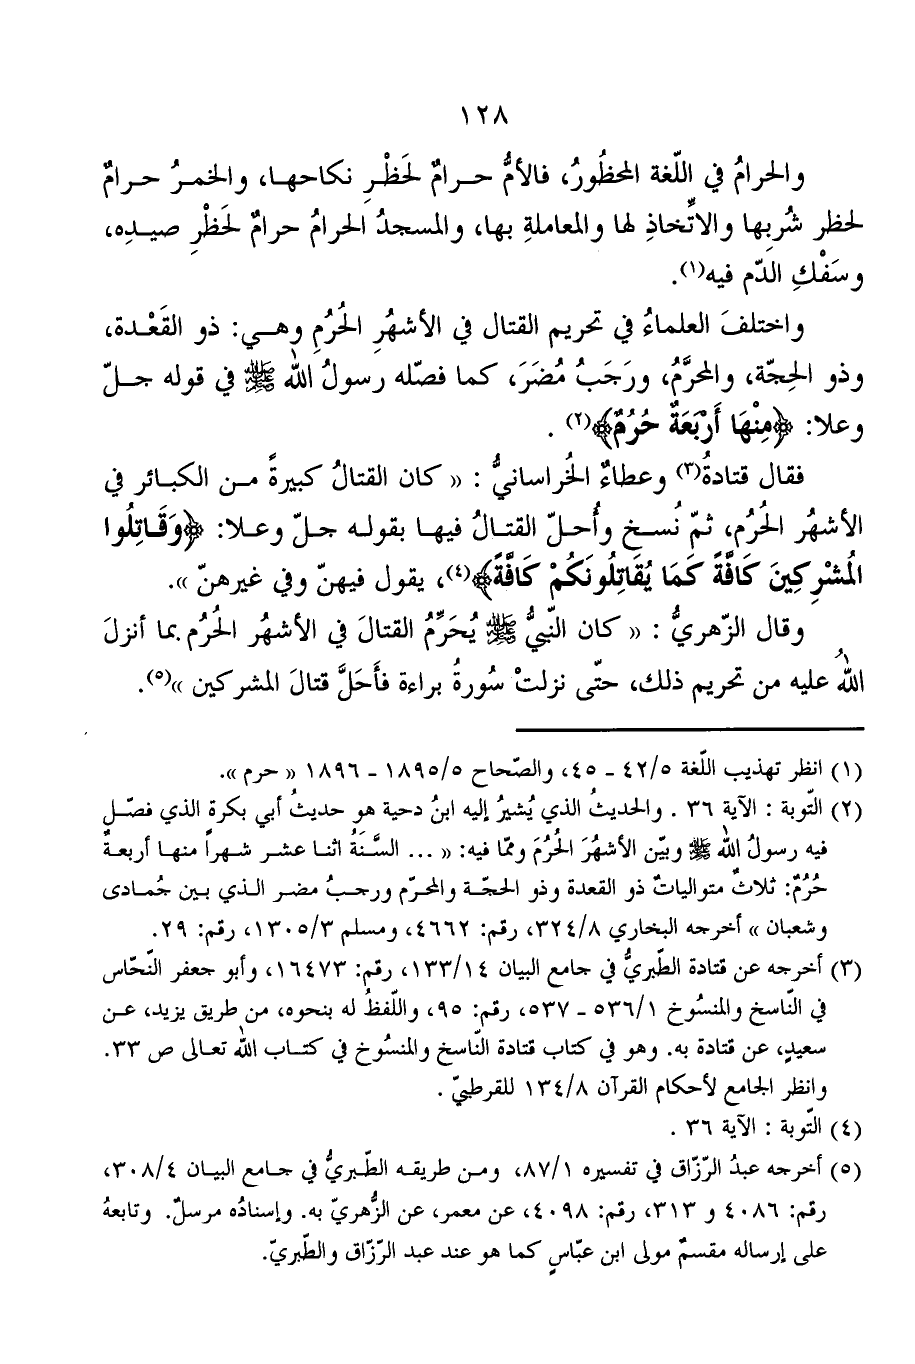 ١٢٨
والحرامُ في اللّغة المحظُورُ، فالأمُّ حـرامٌ لحَظْرِ نكاحهـا، والخمـرُ حـرامٌ
لحظر شُربِها والاتِّخاذِ لها والمعاملةِ بها، والمسجدُ الحرامُ حرامٌ لحَظْرِ صيـدِه،
وسَفْكِ الدّم فيه(١).
واختلفَ العلماءُ في تحريم القتال في الأشهُرِ الحُرُمِ وهـي: ذو القَعْـدة،
وذو الحِجّة، والمحرَّمُ، ورَجَبُ مُضَرَ، كما فصّله رسولُ اللّٰه ﷺ في قوله جـلّ
وعلا: ﴿مِنْهَا أَرْبَعَةٌ حُرُمٌ﴾(٢) .
فقال قتادةُ(٣) وعطاءٌ الخُراسانيُّ : « كان القتالُ كبيرةً مـن الكبائر في
الأشهُر الحُرُم، ثمّ نُسـخ وأُحـلّ القتـالُ فيهـا بقولـه جـلّ وعـلا: ﴿وَقَـاتِلُوا
الْمُشْرِكِينَ كَافَّةً كَمَا يُقَاتِلُونَكُمْ كَافَّةً﴾(٤)، يقول فيهنّ وفي غيرهنّ ».
وقال الزّهريُّ : « كان النّبيُّ ﷺ يُحَرِّمُ القتالَ في الأشهُر الحُرُم بما أنزلَ
اللّٰهُ عليه من تحريم ذلك، حتّى نزلتْ سُورةُ براءة فأَحَلَّ قتالَ المشركين »(٥).
(١) انظر تهذيب اللّغة ٤٢/٥ - ٤٥، والصّحاح ١٨٩٥/٥ - ١٨٩٦ « حرم ».
(٢) التّوبة : الآية ٣٦ . والحديثُ الذي يُشيرُ إليه ابنُ دحية هو حديثُ أبي بكرة الذي فصّـل
فيه رسولُ اللّٰه ﷺ وبيّن الأشهُرَ الحُرُمَ وممّا فيه: « ... السَّنَةُ اثنـا عشـر شـهراً منهـا أربعـةٌ
حُرُمٌ: ثلاثٌ متوالياتٌ ذو القعدة وذو الحجّـة والمحرّم ورجـبُ مضـر الـذي بـين جُمـادى
وشعبان » أخرجه البخاري ٣٢٤/٨، رقم: ٤٦٦٢، ومسلم ١٣٠٥/٣، رقم: ٢٩.
(٣) أخرجه عن قتادة الطّبريُّ في جامع البيان ١٣٣/١٤، رقم: ١٦٤٧٣، وأبو جعفر النّحّاس
في النّاسخ والمنسُوخ ٥٣٦/١ - ٥٣٧، رقم: ٩٥، واللّفظُ له بنحوه، من طريق يزيد، عـن
سعيدٍ، عن قتادة به. وهو في كتاب قتادة النّاسخ والمنسُوخ في كتـاب اللّٰه تعـالى ص ٣٣.
وانظر الجامع لأحكام القرآن ١٣٤/٨ للقرطبيّ .
(٤) التّوبة : الآية ٣٦ .
(٥) أخرجه عبدُ الرّزّاق في تفسيره ٨٧/١، ومـن طريقـه الطّـبريُّ في جـامع البيـان ٣٠٨/٤،
رقم: ٤٠٨٦ و ٣١٣، رقم: ٤٠٩٨، عن معمر، عن الزُّهريّ به. وإسنادُه مرسلٌ. وتابعهُ
على إرساله مقسمٌ مولى ابن عبّاسٍ كما هو عند عبد الرّزّاق والطّبريّ.